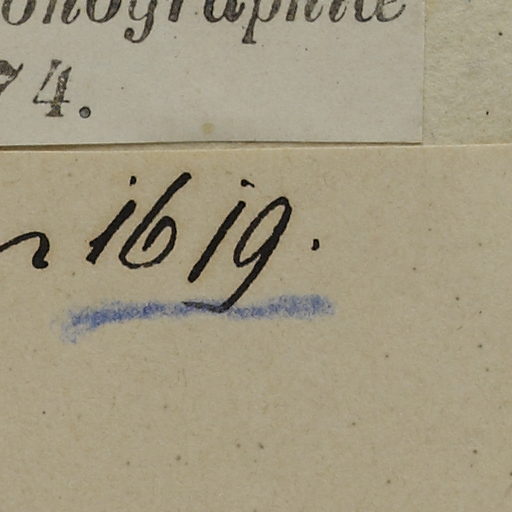 onographie
74.
1619.